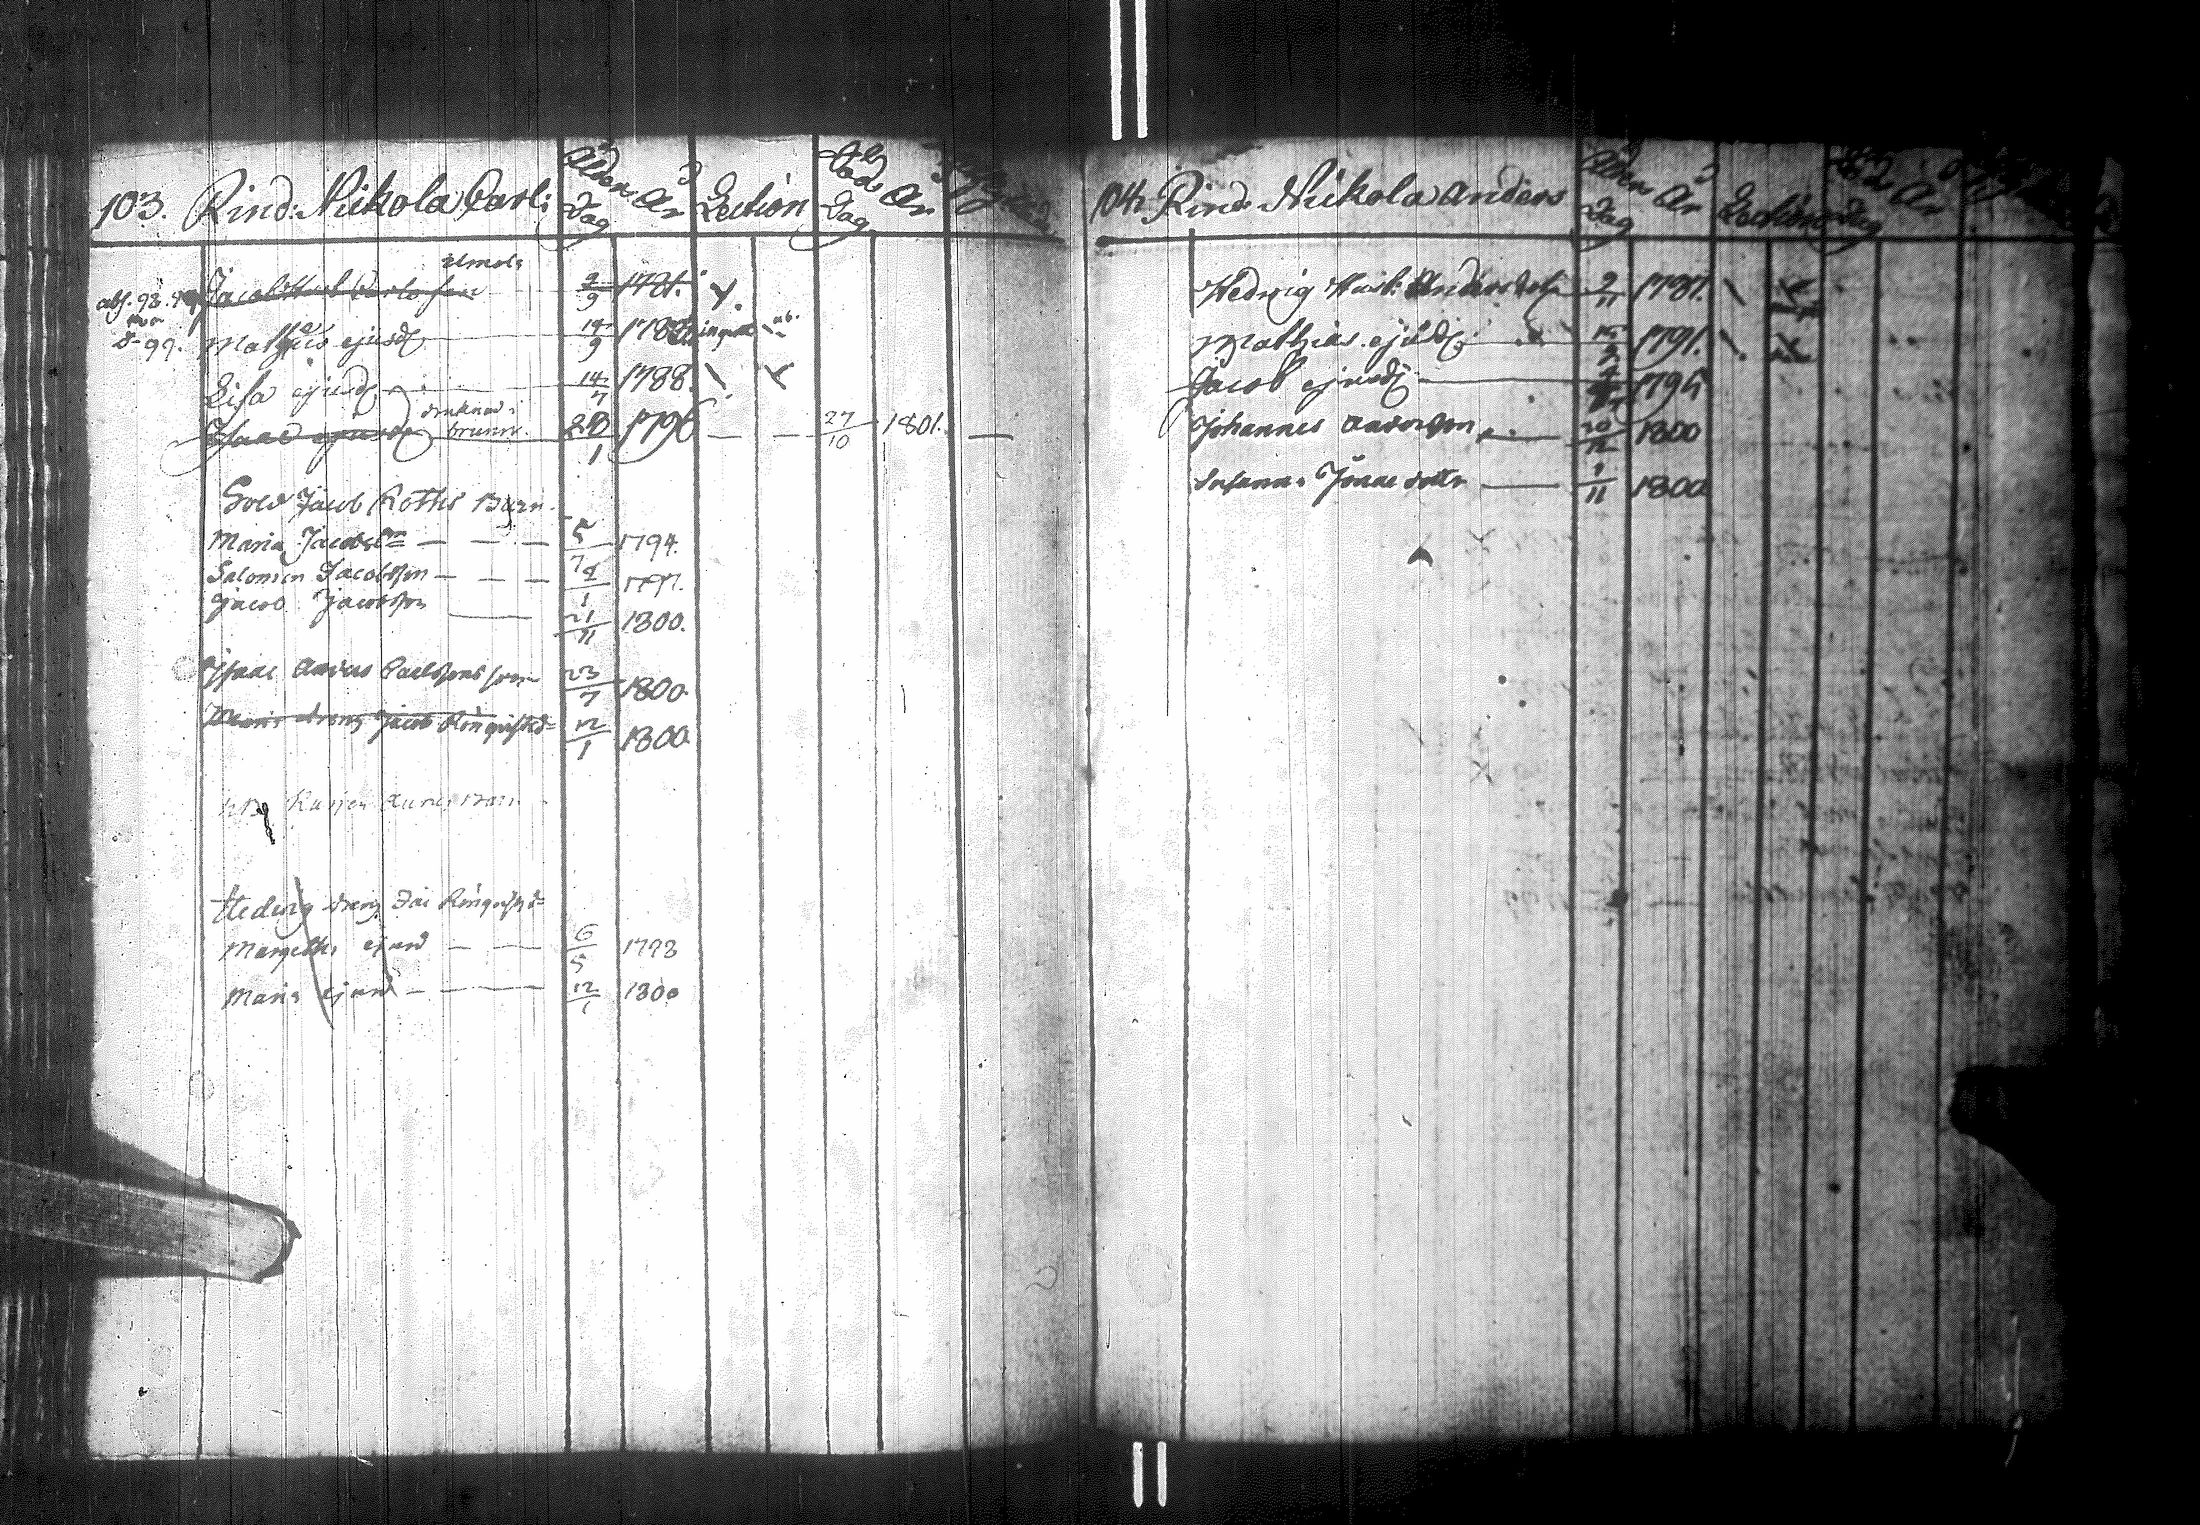 103. Rind: Nikola Carl: Ålders Dag År Lection Död Dag År
utmols
abs. 98. 99 Jacob Carlsson 2/9 1781.
d- 99. Mathias ejusd 14/9
Lisa ejusd 14/7 1788.
druknad i
Isaac ejusd brunn. 1 1796 27/10 1801.
Sold Jacob Rotkis Barn.
Maria Jacobsdr 5/7 1794.
Salomon Jacobsson 1 1797.
Jacob Jacobsson 21/11 1800.
Isaac Anders Carlssons son 23/7 1800.
Maria dreng Jacob Rönqvists 12/1 1800
Barn
Hedwig dreng Jac Rönqvists
Margetha ejusd 6/5 1793
Maria ejusd 12/1 1800
104. Rind: Nikola Anders Ålders Dag År Lection Dag År
Hedwig Anders dotr 2/11 1787.
Mathias ejusd 1791.
Jacob ejusd 1795
Johannes Andersson 20/12 1800
Susanna dottr 1/11 1800